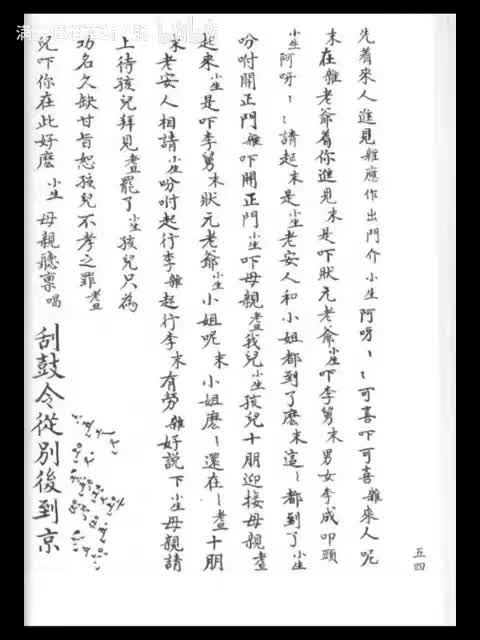 先着來人進見雜應作出門介小生阿呀ㄑㄑ可喜吓可喜雜來人呢
末在雜老爺着你進見末是吓狀元老爺小生吓李舅末男女李成叩頭
小生阿呀ㄑㄑ請起末是小生老安人和小姐都到了麽末這ㄑ都到了小生
吩咐開正門雜吓開正門小生吓母親老旦我兒小生孩兒十朋迎接母親老旦
起來小生是吓李舅末狀元老爺小生小姐呢末小姐麽ㄑ還在ㄑ老旦十朋
末老安人相請小生吩咐起行李雜起行李末有勞雜好説下小生母親請
上待孩兒拜見老旦罷了小生孩兒只為
功名久缺甘旨恕孩兒不孝之罪老旦
兒吓你在此好麽小生母親聽稟唱
刮鼓令從別後到京
五四